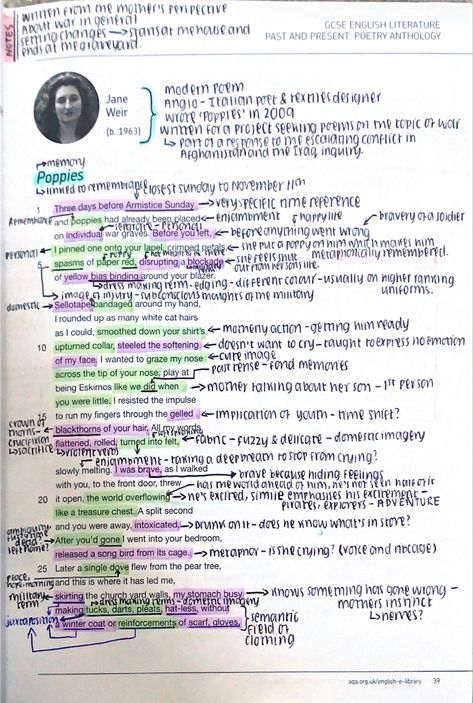 NOTES
written from the mother's perspective
About war in general
setting changes → starts at the house and
ends at the graveyard.
GCSE ENGLISH LITERATURE
PAST AND PRESENT: POETRY ANTHOLOGY
Jane
Weir
(b. 1963)
modern poem
Anglo-Italian poet & textiles designer
wrote 'poppies' in 2009
written for a project seeking poems on the topic of war
part of a response to the escalating conflict in
Afghanistan and the Iraq inquiry.
memory
Poppies
linked to remembrance
closest sunday to November 11th
1 Three days before Armistice Sunday → very specific time reference
Remembrance and poppies had already been placed ← enjambment
happy life
bravery of a soldier
on individual war graves. Before you left, ← before anything went wrong
personal I pinned one onto your lapel, crimped petals, ← she put a poppy on him which makes him
metaphorically remembered.
5 spasms of paper red, disrupting a blockade
out from her sons life.
of yellow bias binding around your blazer.
dress making term - edging - different colour - usually on higher ranking
uniforms.
image of injury - subconscious thoughts of the military
domestic Sellotape bandaged around my hand,
I rounded up as many white cat hairs
as I could, smoothed down your shirt's ← motherly action - getting him ready
10 upturned collar, steeled the softening ← doesn't want to cry - taught to express no emotion
of my face. I wanted to graze my nose ← cute image
across the tip of your nose, play at past tense - fond memories
being Eskimos like we did when → mother talking about her son - 1st person
you were little. I resisted the impulse
15 to run my fingers through the gelled ← implication of youth - time shift?
crown of
thorns -
crucifixion
sacrifice
blackthorns of your hair. All my words
flattened, rolled, turned into felt, fabric - fuzzy & delicate - domestic imagery
violent verbs
enjambment - taking a deep breath to stop from crying?
slowly melting. I was brave, as I walked
brave because hiding feelings
with you, to the front door, threw has the world ahead of him, he's not seen half of it
20 it open, the world overflowing → he's excited, simile emphasises his excitement -
pirates, explorers - ADVENTURE
like a treasure chest. A split second
and you were away, intoxicated. → drunk on it - does he know what's in store?
ambiguity
dead?
left home?
After you'd gone I went into your bedroom,
released a song bird from its cage. → metaphor - is she crying? (voice and ribcage)
25 Later a single dove flew from the pear tree,
peace,
hope, mourning
and this is where it has led me,
military
term
skirting the church yard walls, my stomach busy → knows something has gone wrong -
mothers instinct
nerves?
dress making terms - domestic imagery
making tucks, darts, pleats, hat-less, without
juxtaposition
a winter coat or reinforcements of scarf, gloves.
semantic
field of
clothing
aqa.org.uk/english-e-library
39